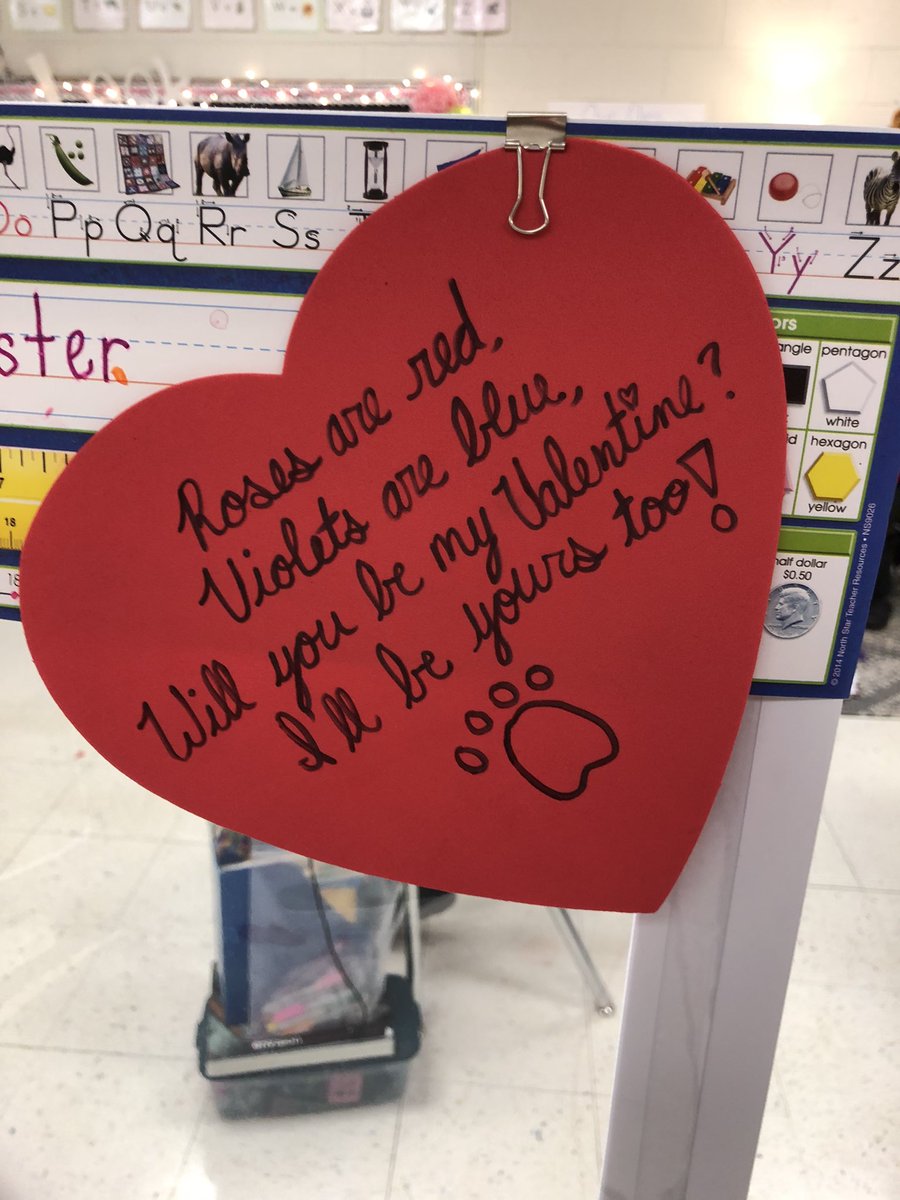 Oo Pp Qq Rr Ss
Yy Zz
ster
Roses are red,
Violets are blue,
Will you be my Valentine?
I'll be yours too!
ors
angle pentagon
white
hexagon
yellow
half dollar
$0.50
7
18
18
© 2014 North Star Teacher Resources • NS9026